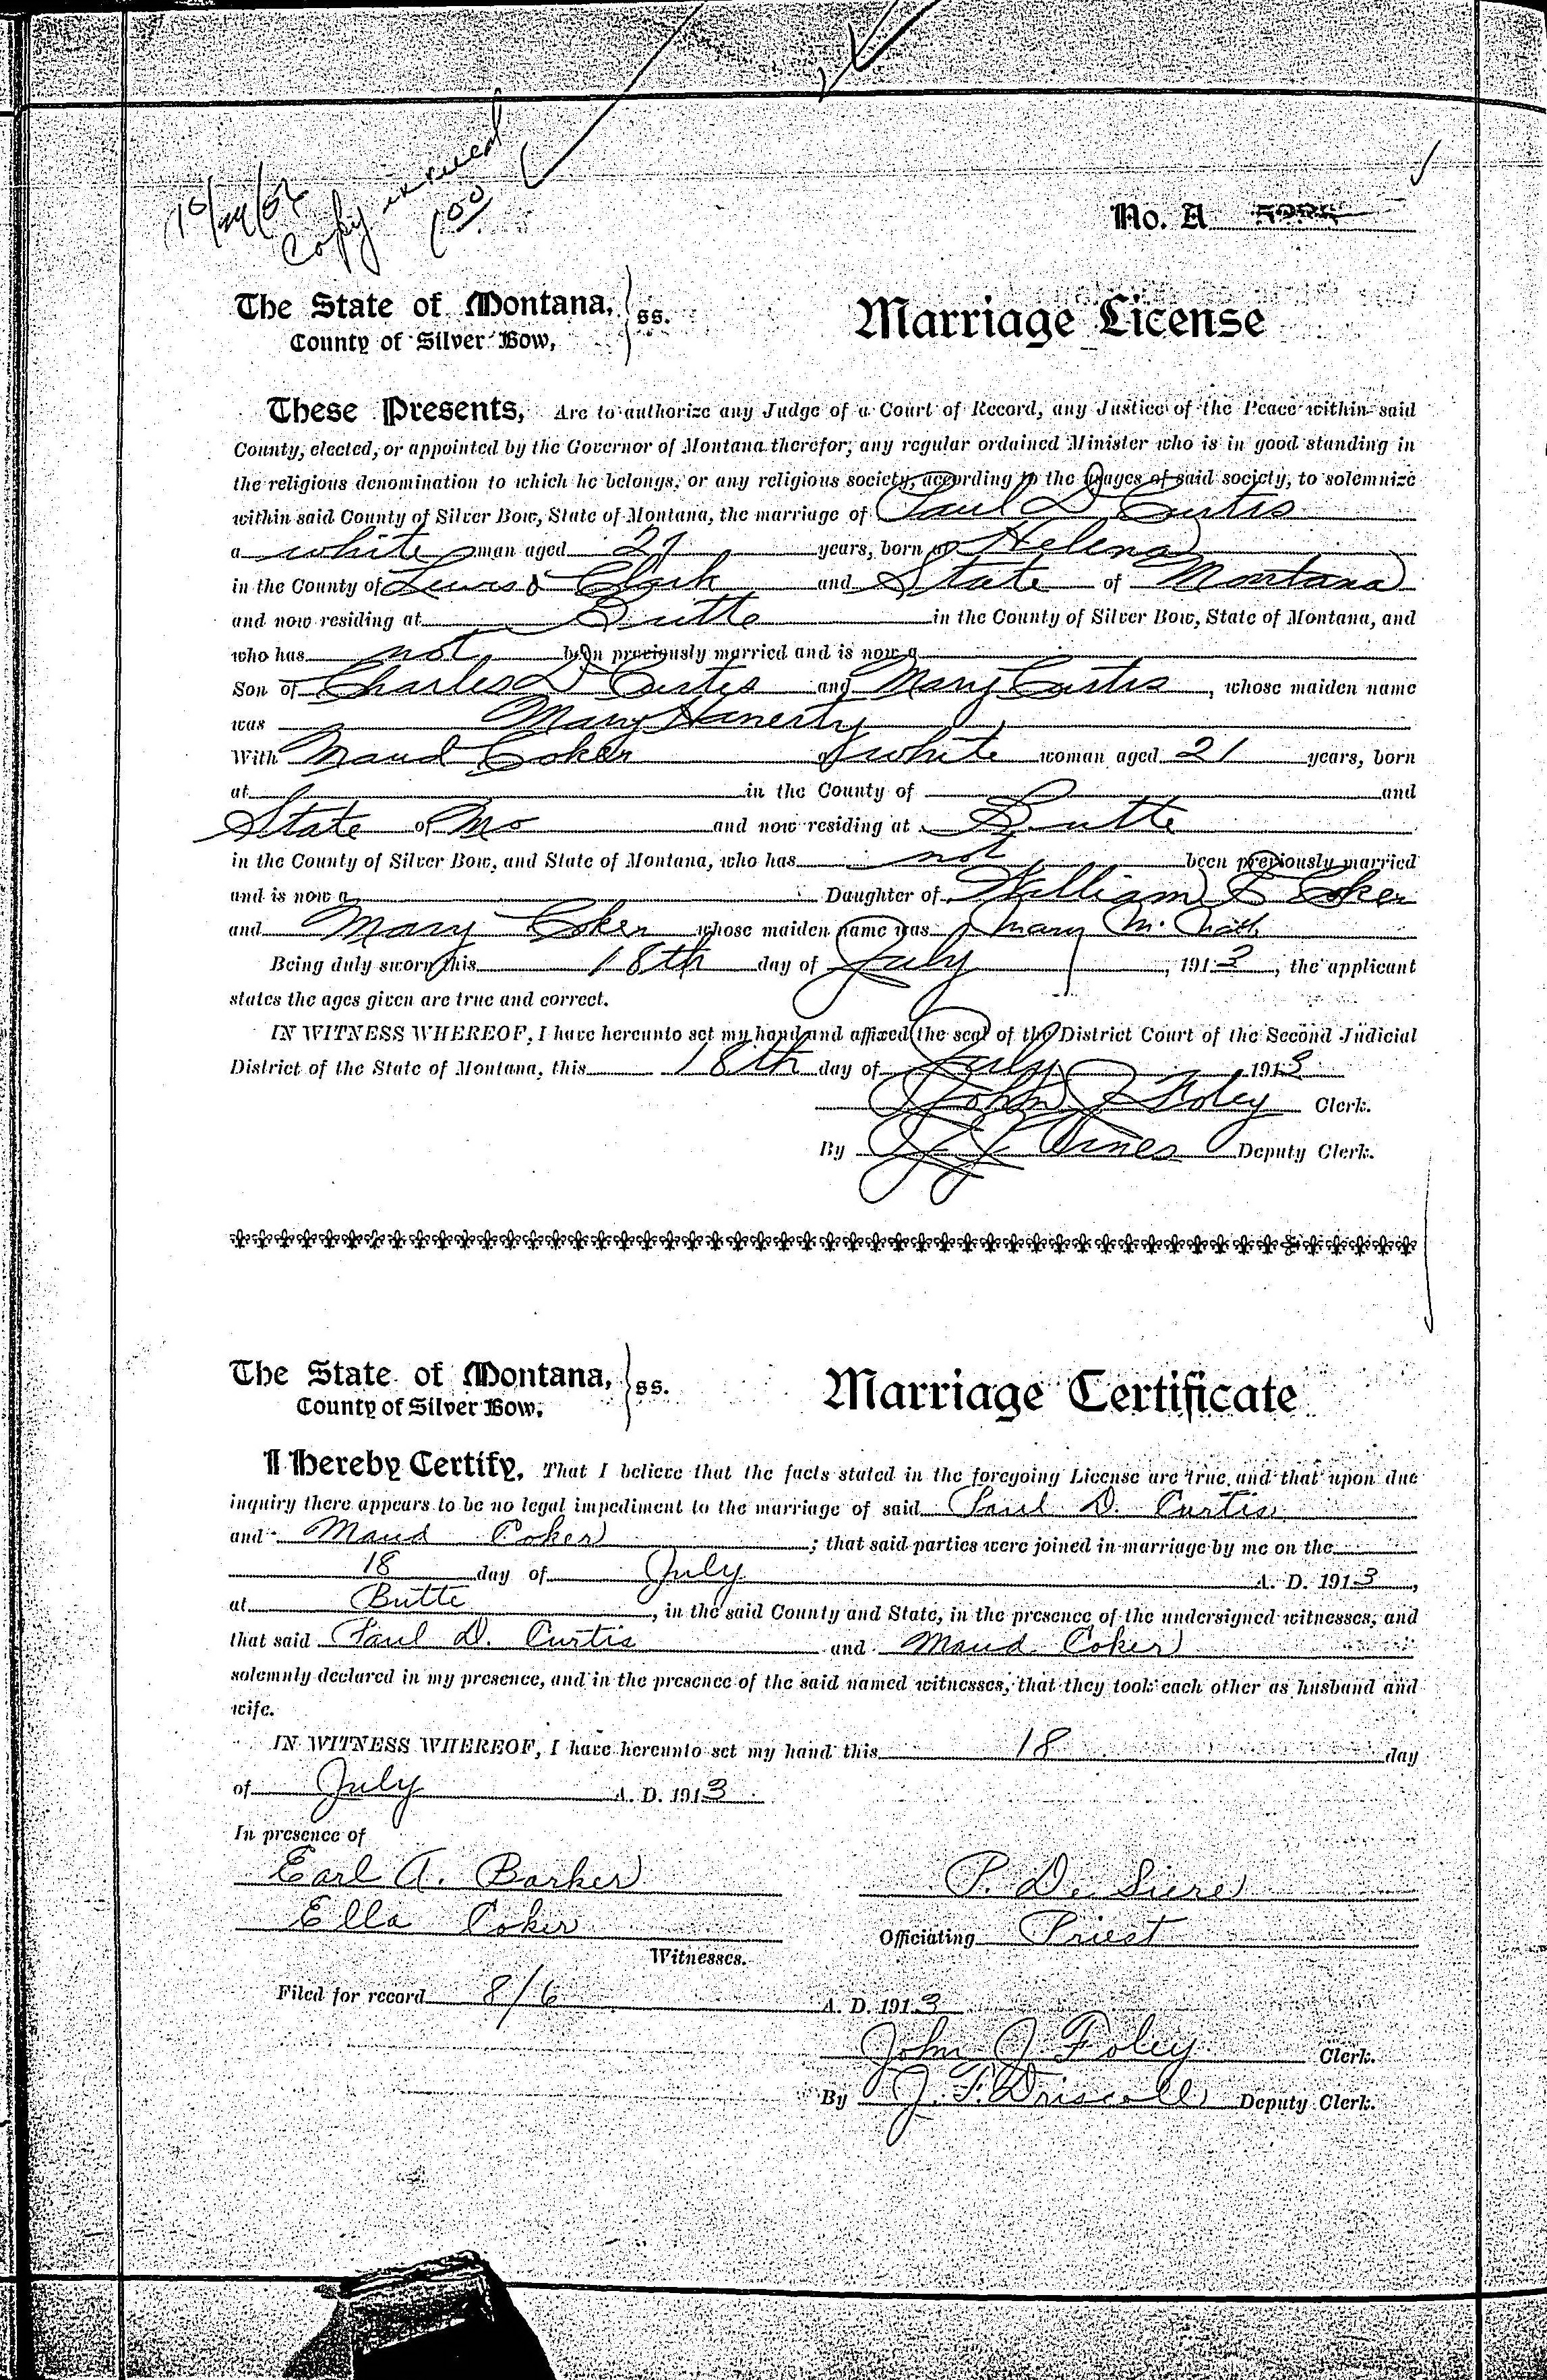 10/24/56
Copy issued
1.00
No. A
The State of Montana, } ss.
County of Silver Bow,
Marriage License
These Presents, Are to authorize any Judge of a Court of Record, any Justice of the Peace within said
County, elected, or appointed by the Governor of Montana therefor; any regular ordained Minister who is in good standing in
the religious denomination to which he belongs, or any religious society, according to the usages of said society, to solemnize
within said County of Silver Bow, State of Montana, the marriage of Paul D Curtis
a white man aged 21 years, born at Helena
in the County of Lewis & Clark and State of Montana
and now residing at Butte in the County of Silver Bow, State of Montana, and
who has not been previously married and is now a
Son of Charles D Curtis and Mary Curtis, whose maiden name
was Mary Hanerty
With Maud Coker a white woman aged 21 years, born
at in the County of and
State of Mo and now residing at Butte
in the County of Silver Bow, and State of Montana, who has not been previously married
and is now a Daughter of William Coker
and Mary Coker whose maiden name was Mary
Being duly sworn this 18th day of July, 1913, the applicant
states the ages given are true and correct.
IN WITNESS WHEREOF, I have hereunto set my hand and affixed the seal of the District Court of the Second Judicial
District of the State of Montana, this 18th day of July 1913
John J Foley Clerk.
By Deputy Clerk.
The State of Montana, } ss.
County of Silver Bow.
Marriage Certificate
I Hereby Certify, That I believe that the facts stated in the foregoing License are true, and that upon due
inquiry there appears to be no legal impediment to the marriage of said Paul D. Curtis
and Maud Coker; that said parties were joined in marriage by me on the
18 day of July A. D. 1913,
at Butte, in the said County and State, in the presence of the undersigned witnesses; and
that said Paul D. Curtis and Maud Coker
solemnly declared in my presence, and in the presence of the said named witnesses, that they took each other as husband and
wife.
IN WITNESS WHEREOF, I have hereunto set my hand this 18 day
of July A. D. 1913
In presence of
Earl A. Barker
P. De Siere
Ella Coker
Officiating Priest
Witnesses.
Filed for record 8/6 A. D. 1913
John J Foley Clerk.
By J. F. Driscoll Deputy Clerk.